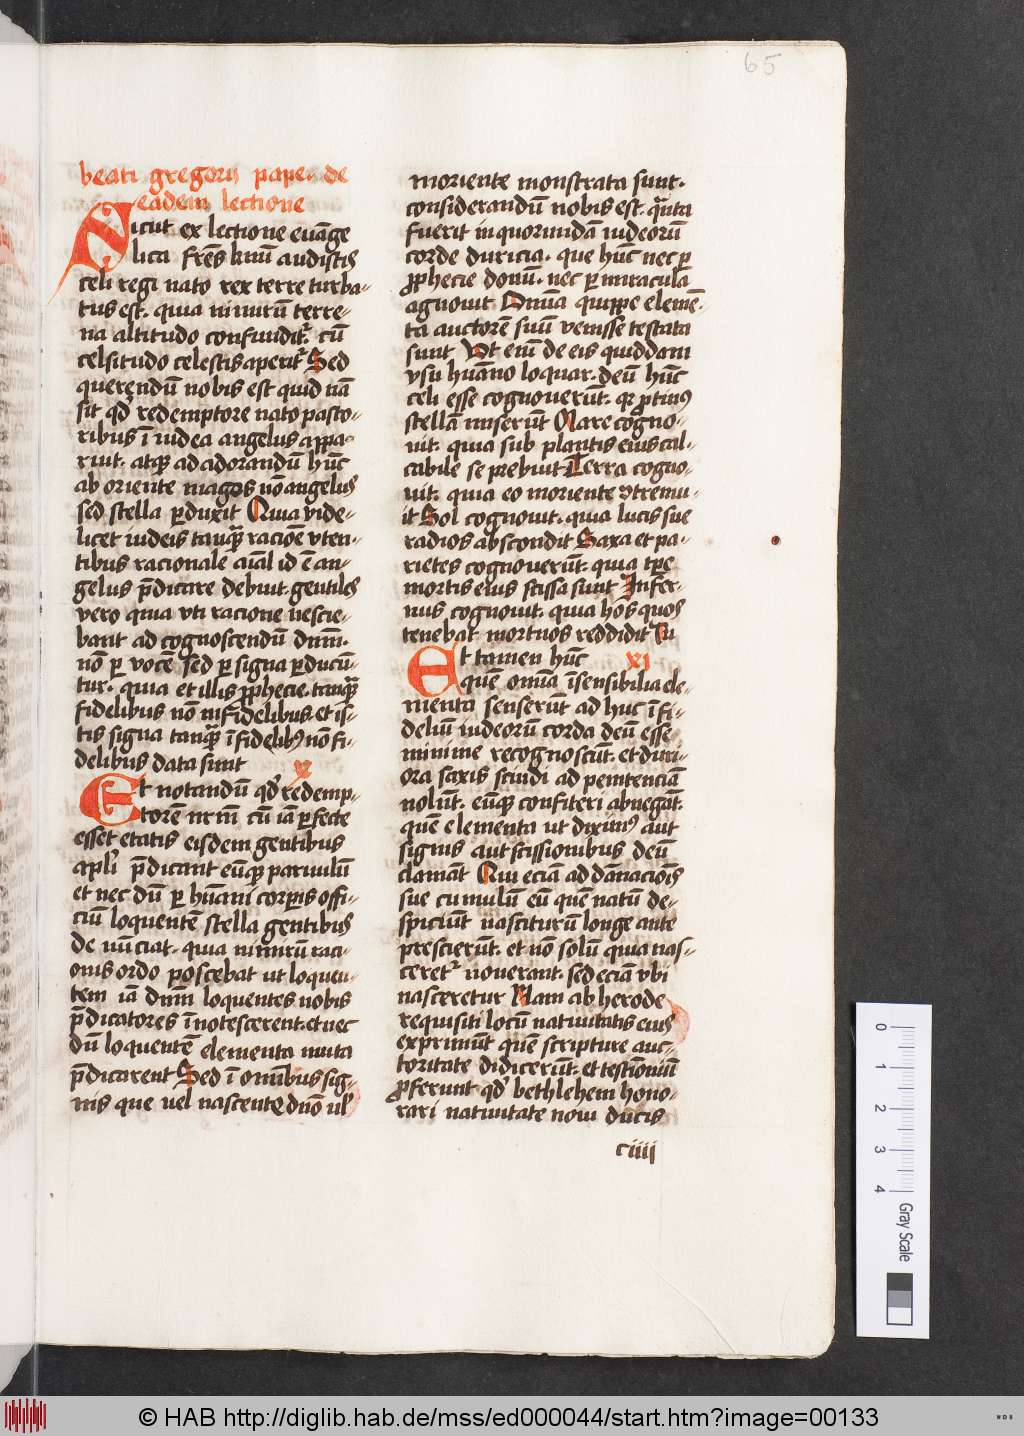 65
beati gregorij pape· de
eadem lectione
Sicut ex lectione euāge
lica fr̄es kr̄mi audistis
celi regi nato rex terre turba-
tus est· quia nimirū terre-
na altitudo confundit᷑ cū
celsitudo celestis aperit᷑ Sed
querendū nobis est quid nā
sit qď redemptore nato pasto-
ribus ī iudea angelus appa-
ruit· atqꝫ ad adorandū hūc
ab oriente magos nō angelus
sed stella ꝑduxit Quia vide-
licet iudeis tanqꝫ̄ racioē vten-
tibus racionale aīal id ē an-
gelus p̄dicare debuit· gentiles
vero quia vti racione nescie-
bant ad cognoscendū dn̄m·
nō ꝑ vocē sed ꝑ signa ꝑducū-
tur· quia et illis ꝓphecie· tanqꝫ̄
fidelibus nō infidelibus· et is-
tis signa tanqꝫ̄ īfidelibꝰ nō fi-
delibus data sunt x
Et notandū qď redemp-
torē nr̄m cū iā ꝑfecte
esset etatis eisdem gentibus
apl̓i p̄dicant eūqꝫ paruulū
et nec dū ꝑ hūani corꝑis offi-
ciū loquentē stella gentibus
de nūciat· quia nimirū raci-
onis ordo poscebat ut loquen-
tem iā dn̄m loquentes nobis
p̄dicatores īnotescerent· et nec
dū loquentē elementa muta
p̄dicarent Sed ī omībus sig-
nis que uel nascente dn̄o ul̓
moriente monstrata sunt·
considerandū nobis est· qn̄ta
fuerit in quorundā iudeorū
corde duricia· que hūc nec ꝑ
ꝓphecie donū· nec ꝑ miraculā
agnouit Omīa quippe elemē-
ta auctorē suū venisse testata
sunt Vt em̄ de eis quiddam
vsu hūano loquar· deū hūc
celi esse cognouerūt· qꝛ ꝓtinꝰ
stellā miserūt Mare cogno-
uit· quia sub plantis eius cal-
cabile se prebuit Terra cogno-
uit· quia eo moriente ꝯtremu-
it Sol cognouit· quia lucis sue
radios abscondit Saxa et pa-
rietes cognouerūt· quia tꝑe
mortis eius scissa sunt Infer-
nus cognouit· quia hos quos
tenebat mortuos reddidit Tu
Et tamen hūc xi
quem omīa īsensibilia ele-
menta senserūt ad huc ī fi-
deliū iudeorū corda deū esse
minime recognoscūt· et duri-
ora saxis scindi ad penitenciā
nolūt· eūqꝫ confiteri abnegāt·
quē elementa ut diximꝰ aut
signis aut scissionibus deū
clamāt Qui eciā ad dānaciōis
sue cumulū eū quem natū de-
spiciūt nasciturū longe ante
prescierūt· et nō solū quia nas-
ceret᷑ nouerant· sed eciā vbi
nasceretur Nam ab herode
requisiti locū natiuitatis eius
exprimūt quem scripture auc-
toritate didicerūt· et testīoniū
ꝓferunt qď bethlehem hono-
rari natiuitate noui ducis
ciiii
0 1 2 3 4
Gray Scale
© HAB http://diglib.hab.de/mss/ed000044/start.htm?image=00133